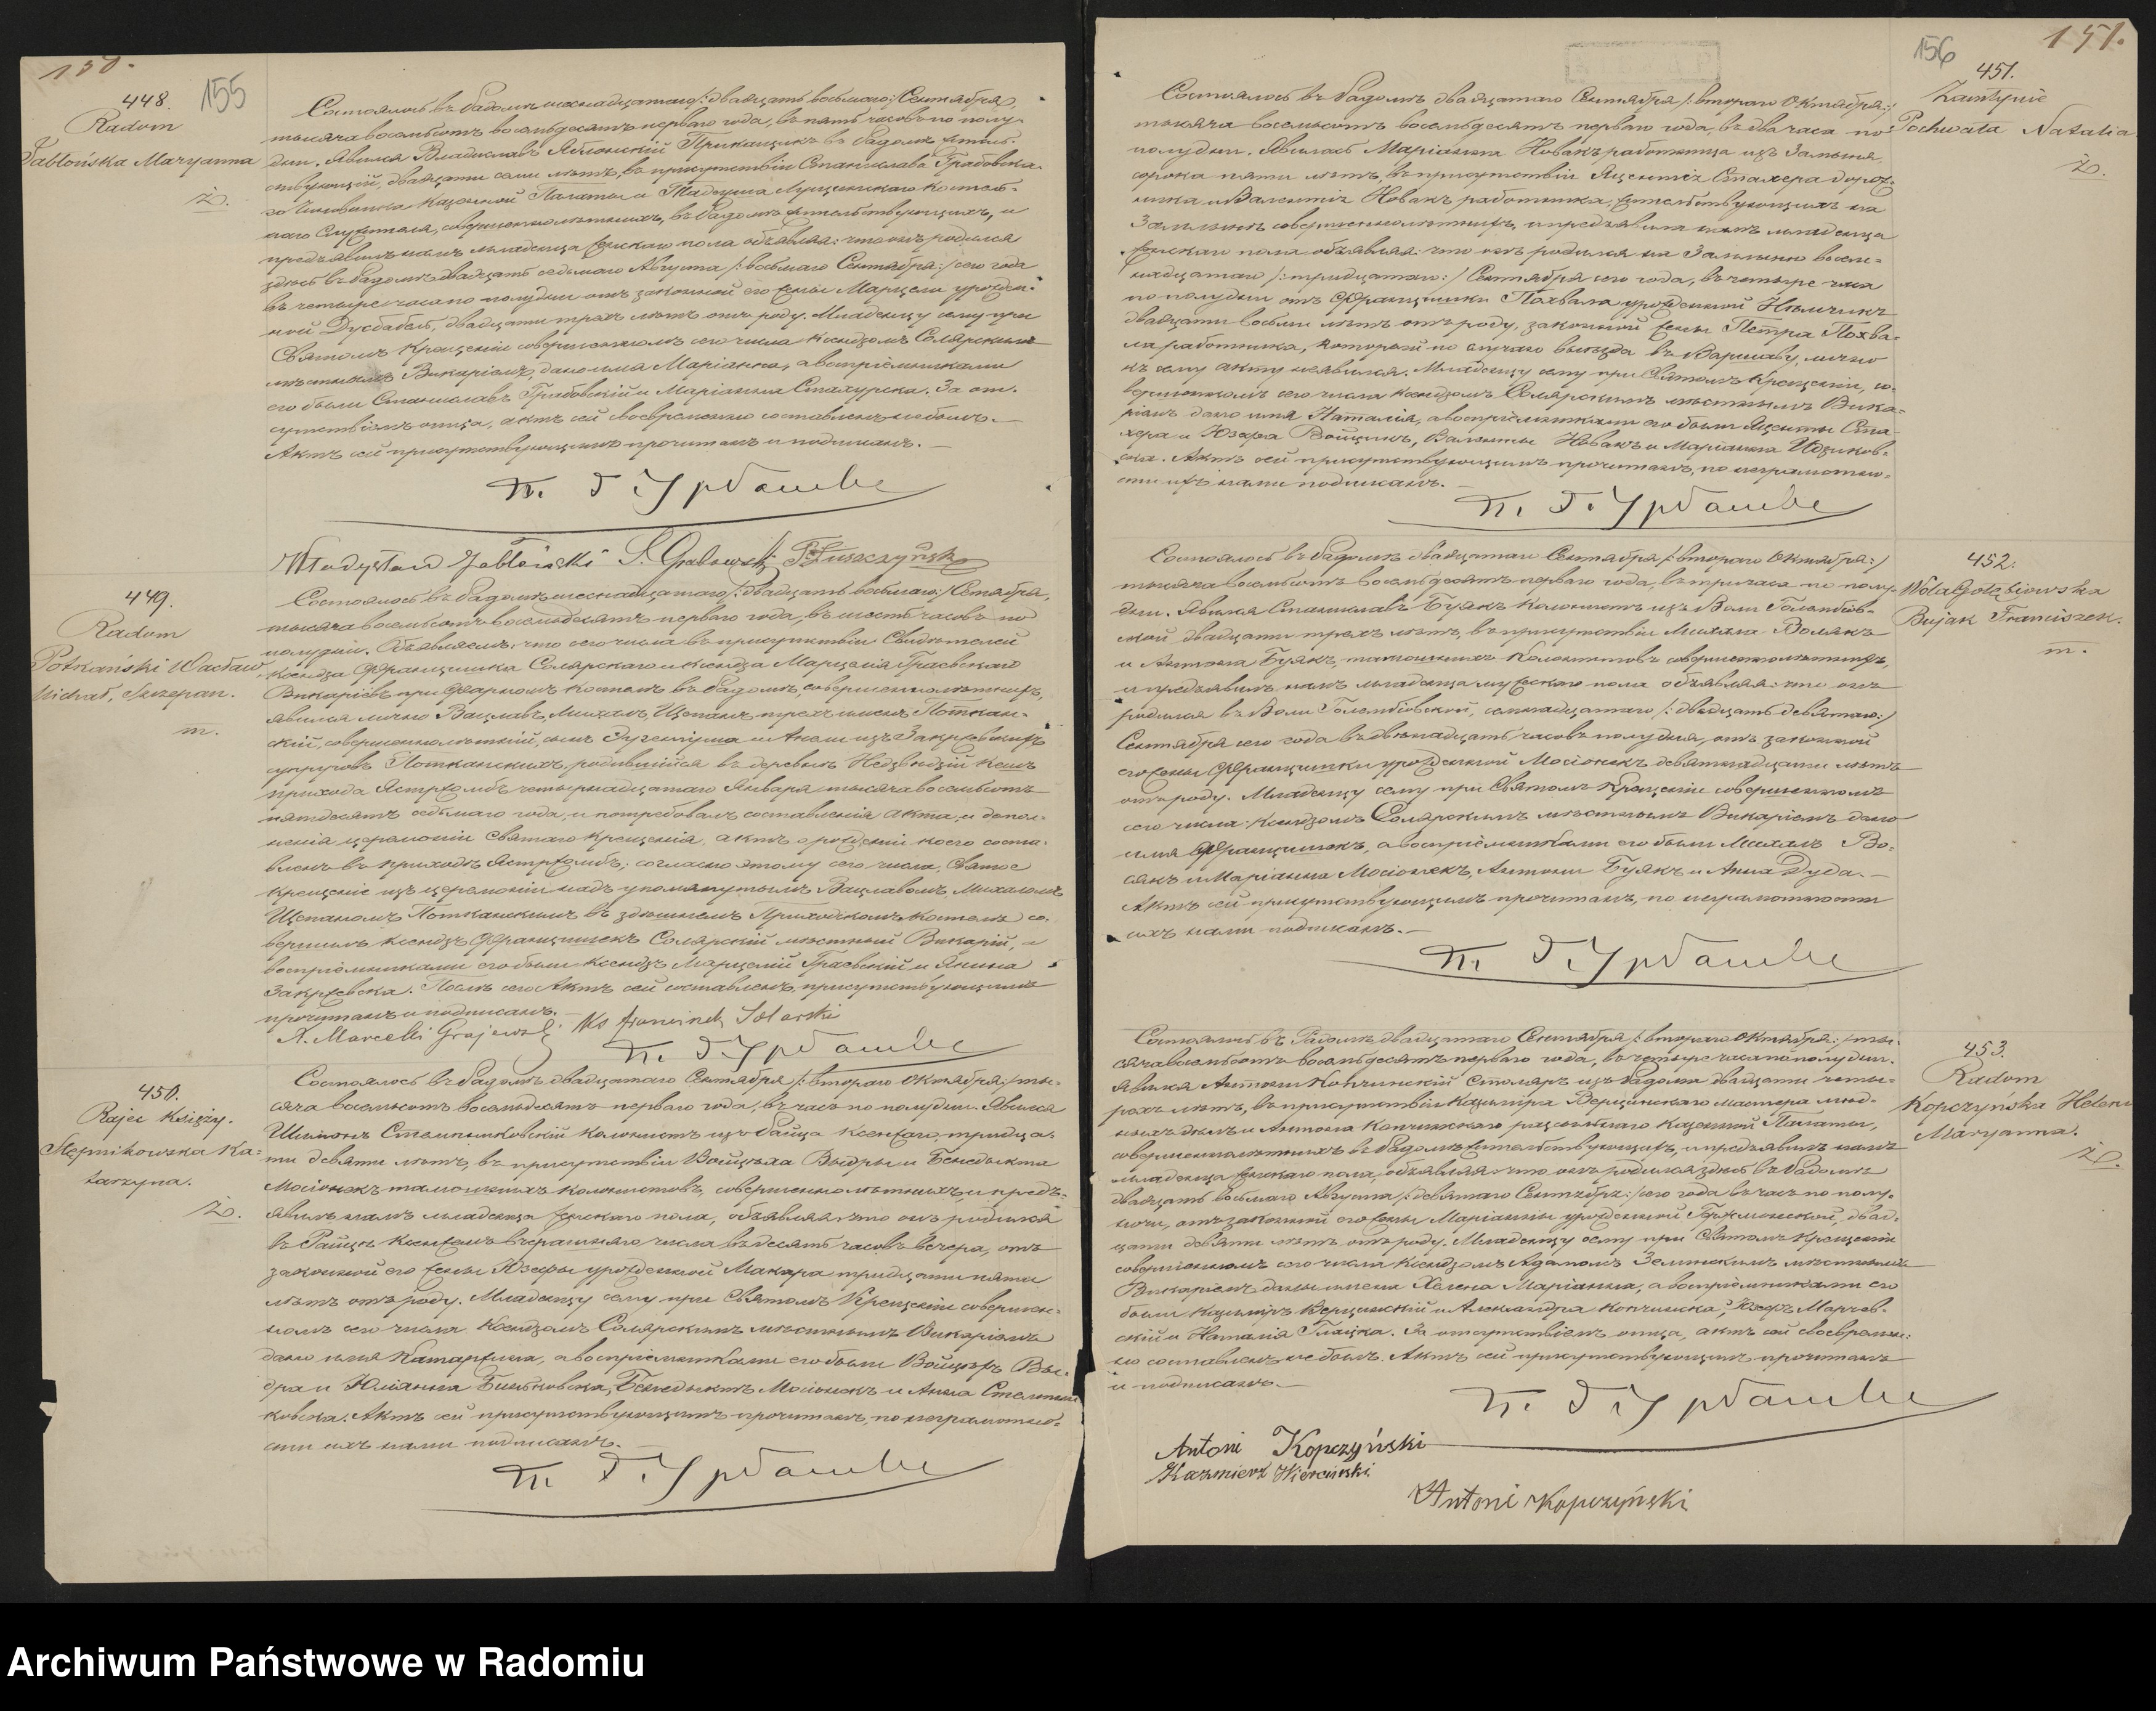 150.
155
448.
Radom
Jabłońska Maryanna
ż.
Состоялось въ Радомѣ шестнадцатаго /: двадцать восьмаго :/ Сентября,
тысяча восемьсотъ восемьдесятъ перваго года, въ пять часовъ по полу-
дни. Явился Владиславъ Яблонскій Прикащикъ въ Радомѣ житель-
ствующій, двадцати семи лѣтъ, въ присутствіи Станислава Грабовска-
го Чиновника Казенной Палаты и Тадеуша Лущинскаго Контор-
наго Служителя, совершеннолѣтнихъ, въ Радомѣ жительствующихъ, и
предъявилъ намъ младенца женскаго пола объявляя: что онъ родился
здѣсь въ Радомѣ двадцать седьмаго Августа /: восьмаго Сентября :/ сего года
въ четыре часа по полудни отъ законной его жены Марцели урожден-
ной, двадцати трехъ лѣтъ отъ роду. Младенцу сему при
Святомъ Крещеніи совершенномъ сего числа Ксендзомъ Солярскимъ
мѣстнымъ Викаріемъ, дано имя Маріанна, а воспріемниками
его были Станиславъ Грабовскій и Маріанна Стахурска. За от-
сутствіемъ отца, актъ сей своевременно составленъ не былъ.—
Актъ сей присутствующимъ прочитанъ и подписанъ.—
Władysław Jabłoński S. Grabowski T. Łuszczyński
449.
Radom
Potkański Wacław,
Michał, Szczepan.
m.
Состоялось въ Радомѣ шестнадцатаго /: двадцать восьмаго :/ Сентября,
тысяча восемьсотъ восемьдесятъ перваго года, въ шесть часовъ по
полудни. Объявляемъ: что сего числа въ присутствіи Свидѣтелей
Ксендза Францишка Солярскаго и Ксендза Марцелія Граевскаго
Викаріевъ при Фарномъ Костелѣ въ Радомѣ, совершеннолѣтнихъ,
явился лично Вацлавъ, Михалъ, Щепанъ трехъ именъ Поткан-
скій, совершеннолѣтній, сынъ Эугеніуша и Анели изъ Закржевскихъ
супруговъ Потканскихъ, родившійся въ деревнѣ
прихода Ястржомбъ четырнадцатаго Января тысяча восемьсотъ
пятдесятъ седьмаго года, и потребовалъ составленія акта, и допол-
ненія церемоніи Святаго Крещенія, актъ о рожденіи коего состав-
ленъ въ приходѣ Ястржомбъ; согласно этому сего числа, Святое
Крещеніе изъ церемоніи надъ упомянутымъ Вацлавомъ, Михаломъ
Щепаномъ Потканскимъ въ здѣшнемъ Приходскомъ Костелѣ со-
вершилъ Ксендзъ Францишекъ Солярскій мѣстный Викарій, а
воспріемниками его были Ксендзъ Марцелій Граевскій и Янина
Закржевска. Послѣ сего Актъ сей составленъ, присутствующимъ
прочитанъ и подписанъ.—
X. Marcelli Grajewski Ks Franciszek Solarski
450.
Rajec Księży.
Stępnikowska Ka-
tarzyna.
ż.
Состоялось въ Радомѣ двадцатаго Сентября /: втораго Октября :/ ты-
сяча восемьсотъ восемьдесятъ перваго года, въ часъ по полудни. Явился
Шимонъ Стемпниковскій колонистъ изъ Райца Ксенжаго, тридца-
ти девяти лѣтъ, въ присутствіи Войцѣха Выдры и Бенедыкта
Мосіонжекъ тамошнихъ колонистовъ, совершеннолѣтнихъ и предъ-
явилъ намъ младенца женскаго пола, объявляя что онъ родился
въ Райцѣ Ксенжемъ вчерашняго числа въ десять часовъ вечера, отъ
законной его жены Юзефы урожденной Макара тридцати пяти
лѣтъ отъ роду. Младенцу сему при Святомъ Крещеніи совершен-
номъ сего числа Ксендзомъ Солярскимъ мѣстнымъ Викаріемъ
дано имя Катаржина, а воспріемниками его были Войцѣхъ Вы-
дра и Юліанна, Бенедыктъ Мосіонжекъ и Анна Стемпни-
ковска. Актъ сей присутствующимъ прочитанъ, по неграмотно-
сти ихъ нами подписанъ.—
151.
156
451.
Zamłynie
Pochwała Natalia
ż.
Состоялось въ Радомѣ двадцатаго Сентября /: втораго Октября :/
тысяча восемьсотъ восемьдесятъ перваго года, въ два часа по
полудни. Явилась Маріанна Новакъ работница изъ Замлыня,
сорока пяти лѣтъ, въ присутствіи Яцентія Стахера дорож-
ника и Валентія Новакъ работника, жительствующихъ на
Замлынѣ совершеннолѣтнихъ, и предъявила намъ младенца
женскаго пола объявляя: что онъ родился на Замлыню восем-
надцатаго /: тридцатаго :/ Сентября сего года, въ четыре часа
по полудни отъ Францишки Похвала урожденной Нѣмчикъ
двадцати восьми лѣтъ отъ роду, законной жены Петра Похва-
ла работника, который по случаю выѣзда въ Варшаву, лично
къ сему акту неявился. Младенцу сему при Святомъ Крещеніи, со-
вершенномъ сего числа Ксендзомъ Солярскимъ мѣстнымъ Вика-
ріемъ дано имя Наталія, а воспріемниками его были Яценты Ста-
хера и Юзефа Войцикъ, Валенты Новакъ и Маріанна Идзиков-
ска. Актъ сей присутствующимъ прочитанъ, по неграмотно-
сти ихъ нами подписанъ.—
452.
Wola Gołębiowska
Bujak Franciszek.
m.
Состоялось въ Радомѣ двадцатаго Сентября /: втораго Октября :/
тысяча восемьсотъ восемьдесятъ перваго года, въ три часа по полу-
дни. Явился Станиславъ Буякъ колонистъ изъ Воли Голембіов-
ской двадцати трехъ лѣтъ, въ присутствіи Михала Восякъ
и Антонія Буякъ, тамошнихъ колонистовъ совершеннолѣтнихъ,
и предъявилъ намъ младенца мужескаго пола объявляя: что онъ
родился въ Воли Голембіовской, семнадцатаго /: двадцать девятаго :/
Сентября сего года въ двѣнадцать часовъ полудня, отъ законной
его жены Францишки урожденной Мосіонжекъ девятнадцати лѣтъ
отъ роду. Младенцу сему при Святомъ Крещеніи совершенномъ
сего числа Ксендзомъ Солярскимъ мѣстнымъ Викаріемъ дано
имя Францишекъ, а воспріемниками его были Михалъ Во-
сякъ и Маріанна Мосіонжекъ, Антони Буякъ и Анна Дуда.—
Актъ сей присутствующимъ прочитанъ, по неграмотности
ихъ нами подписанъ.—
453.
Radom
Kopczyńska Helena
Maryanna.
ż.
Состоялось въ Радомѣ двадцатаго Сентября /: втораго Октября :/ ты-
сяча восемьсотъ восемьдесятъ перваго года, въ четыре часа по полудни.
Явился Антони Копчинскій Столяръ изъ Радома двадцати четы-
рехъ лѣтъ, въ присутствіи Казиміра Верцинскаго мастера мѣд-
ныхъ дѣлъ и Антонія Копчинскаго разсыльнаго Казенной Палаты,
совершеннолѣтнихъ въ Радомѣ жительствующихъ, и предъявилъ намъ
младенца женскаго пола, объявляя что онъ родился здѣсь въ Радомѣ
двадцать восьмаго Августа /: девятаго Сентября :/ сего года въ часъ по полу-
ночи, отъ законной его жены Маріанны урожденной, двад-
цати девяти лѣтъ отъ роду. Младенцу сему при Святомъ Крещеніи
совершенномъ сего числа Ксендзомъ Адамомъ мѣстнымъ
Викаріемъ даны имена Хелена Маріанна, а воспріемниками его
были Казиміръ Верцинскій и Александра Копчинска, Юзефъ Марчев-
скій и Наталія. За отсутствіемъ отца, актъ сей своевремен-
но составленъ не былъ. Актъ сей присутствующимъ прочитанъ
и подписанъ.—
Antoni Kopczyński
Kazmierz Wierciński
Antoni Kopczyński
Archiwum Państwowe w Radomiu